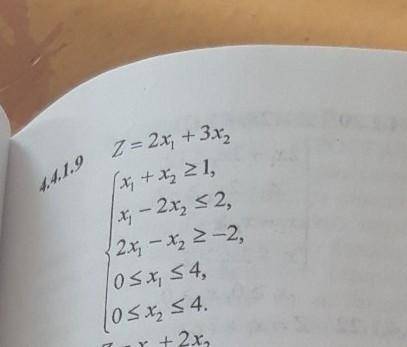 4.4.1.9 Z = 2x₁ + 3x₂
x₁ + x₂ ≥ 1,
x₁ − 2x₂ ≤ 2,
2x₁ − x₂ ≥ −2,
0 ≤ x₁ ≤ 4,
0 ≤ x₂ ≤ 4.
+ 2x₂